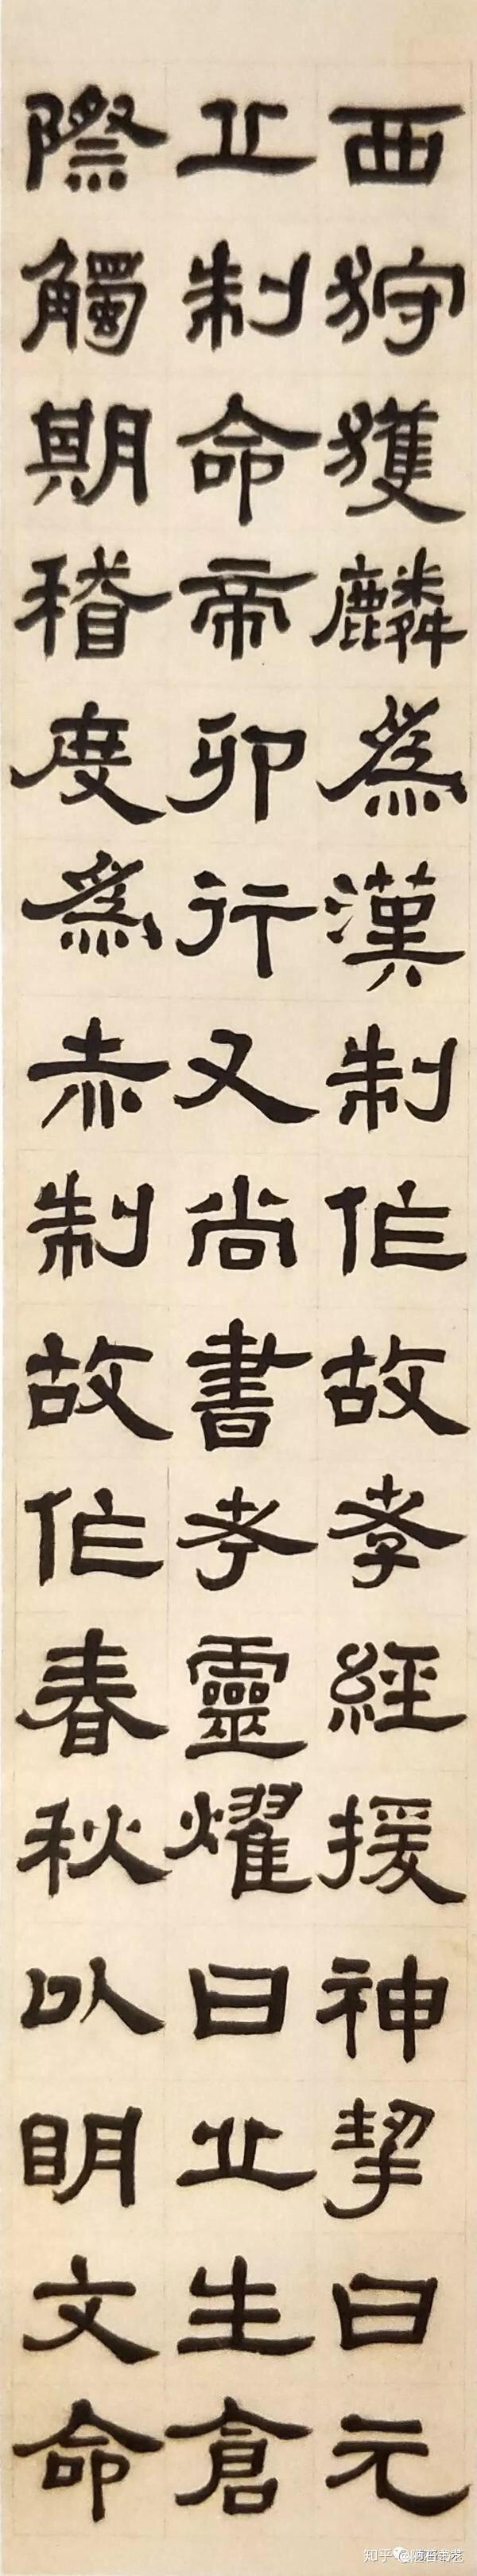 西狩獲麟爲漢制作故孝經援神挈曰元
丘制命帝卯行又尚書考靈燿曰丘生倉
際觸期稽度爲赤制故作春秋以明文命
知乎